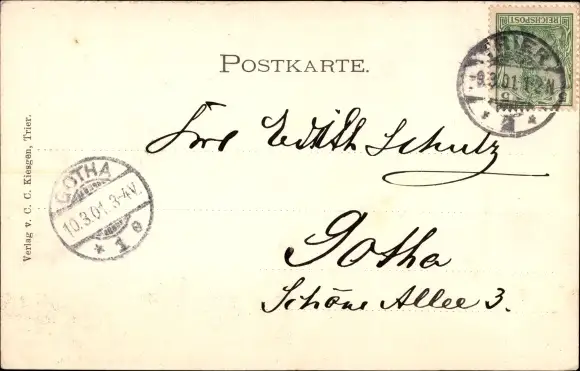 REICHSPOST
TRIER
9.3.01.1-2N
POSTKARTE.
Edith Schulz
Gotha
Schöne Allee 3.
GOTHA
10.3.01.3-4V.
* 1 e
Verlag v. C. C. Kiesgen, Trier.